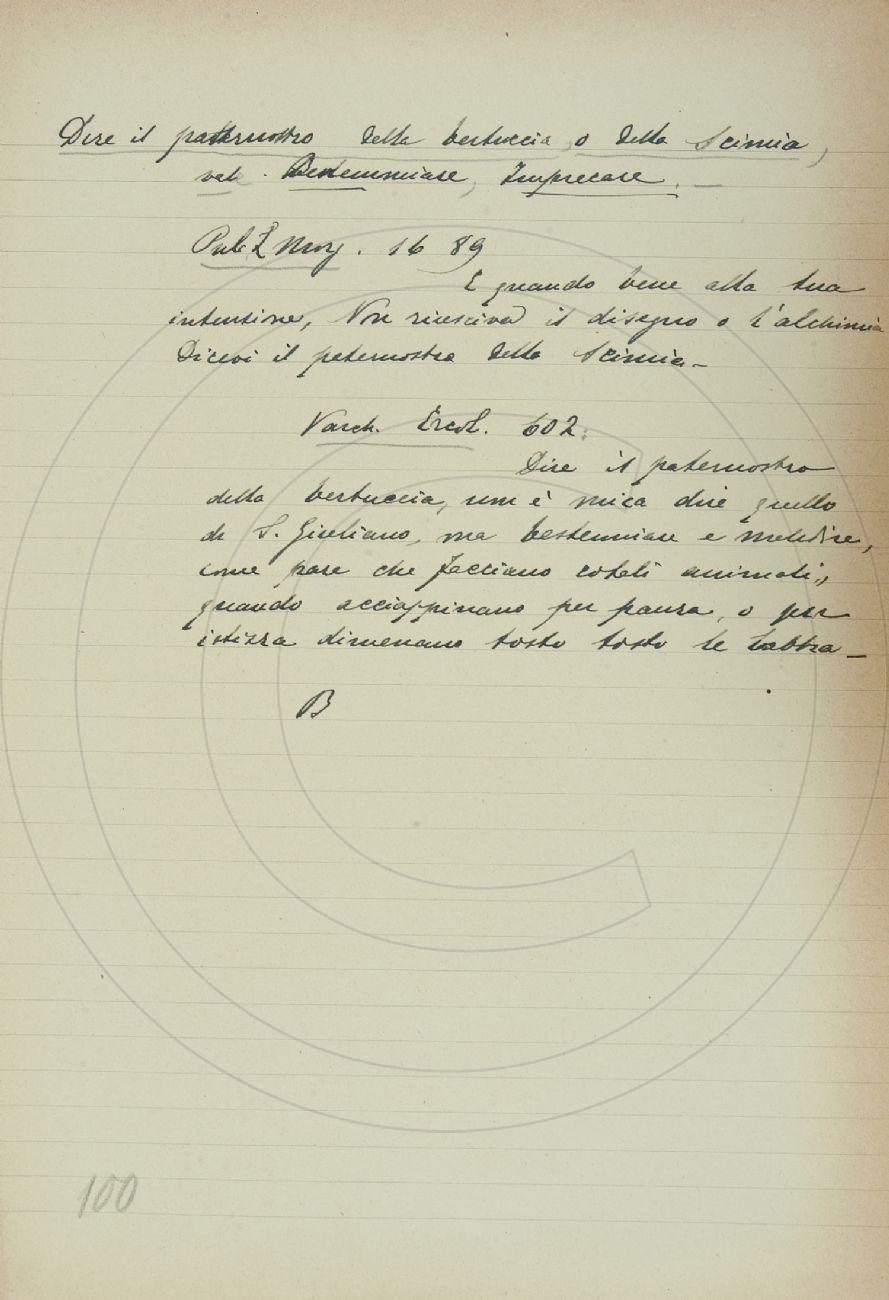 Dire il paternostro della bertuccia, o della Scimia,
vale Bestemmiare, Imprecare.
Pulc. L. Morg. 16 89
E quando bene alla tua
intenzione, Non riusciva il disegno o l'alchimia
Dicevi il paternostro della Scimia.
Varch. Ercol. 602.
Dire il paternostro
della bertuccia, non è mica dire quello
di S. Giuliano, ma bestemmiare e maledire,
come pare che facciano cotali animali,
quando acciappinano per paura, o per
istizza dimenano tosto tosto le labbra_
B
100